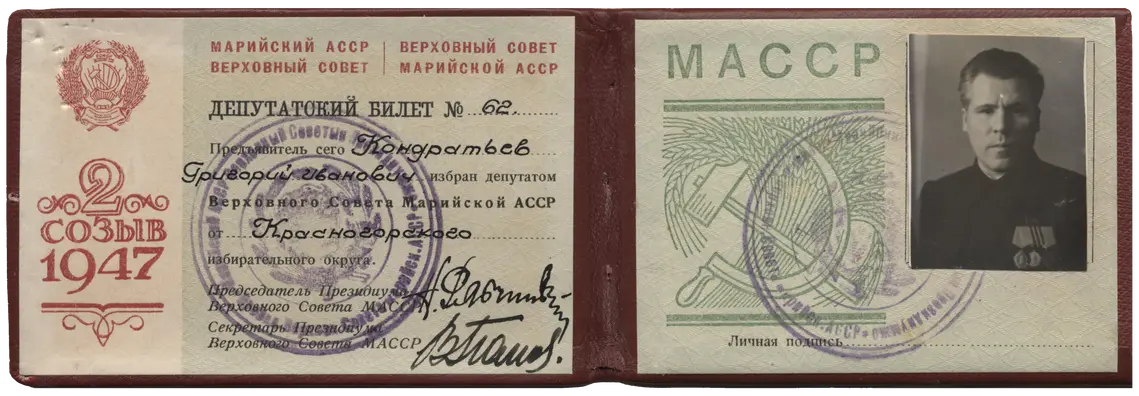 МАРИЙСКИЙ АССР
ВЕРХОВНЫЙ СОВЕТ
ВЕРХОВНЫЙ СОВЕТ
МАРИЙСКОЙ АССР
ДЕПУТАТСКИЙ БИЛЕТ № 62.
Предъявитель сего Кондратьев
Григорий Иванович избран депутатом
Верховного Совета Марийской АССР
от Красногорского
избирательного округа.
Председатель Президиума
Верховного Совета МАССР
Секретарь Президиума
Верховного Совета МАССР
2
СОЗЫВ
1947
МАССР
Личная подпись